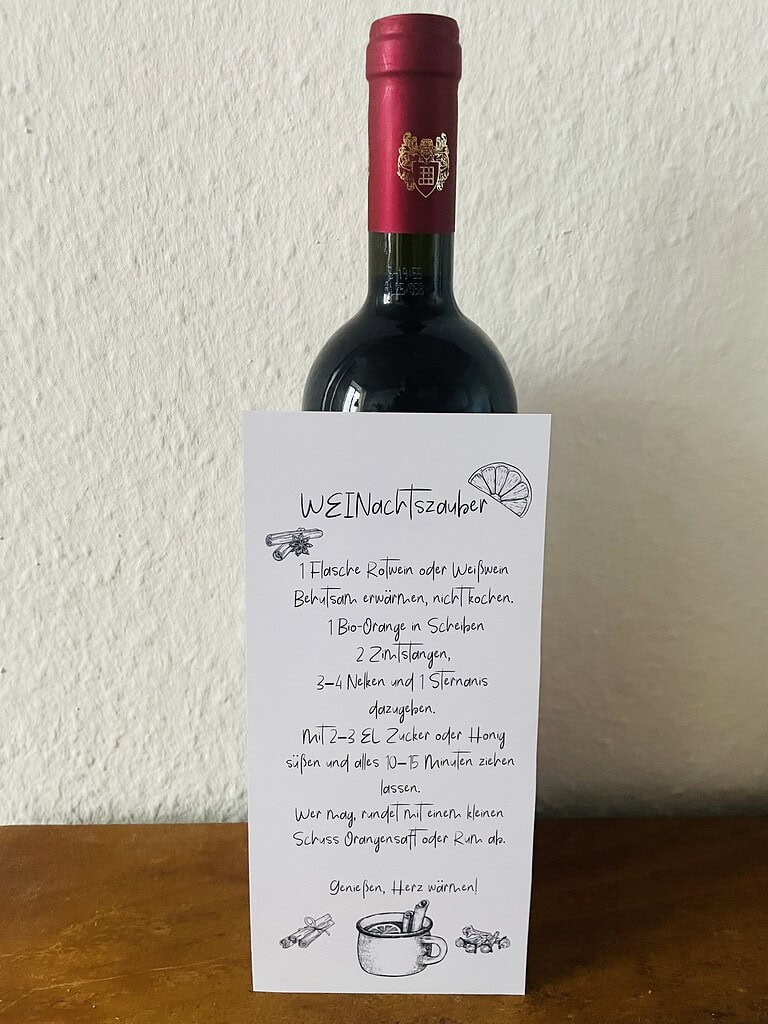 WEINachtszauber
1 Flasche Rotwein oder Weißwein
Behutsam erwärmen, nicht kochen.
1 Bio-Orange in Scheiben
2 Zimtstangen,
3–4 Nelken und 1 Sternanis
dazugeben.
Mit 2–3 EL Zucker oder Honig
süßen und alles 10–15 Minuten ziehen
lassen.
Wer mag, rundet mit einem kleinen
Schuss Orangensaft oder Rum ab.
Genießen, Herz wärmen!